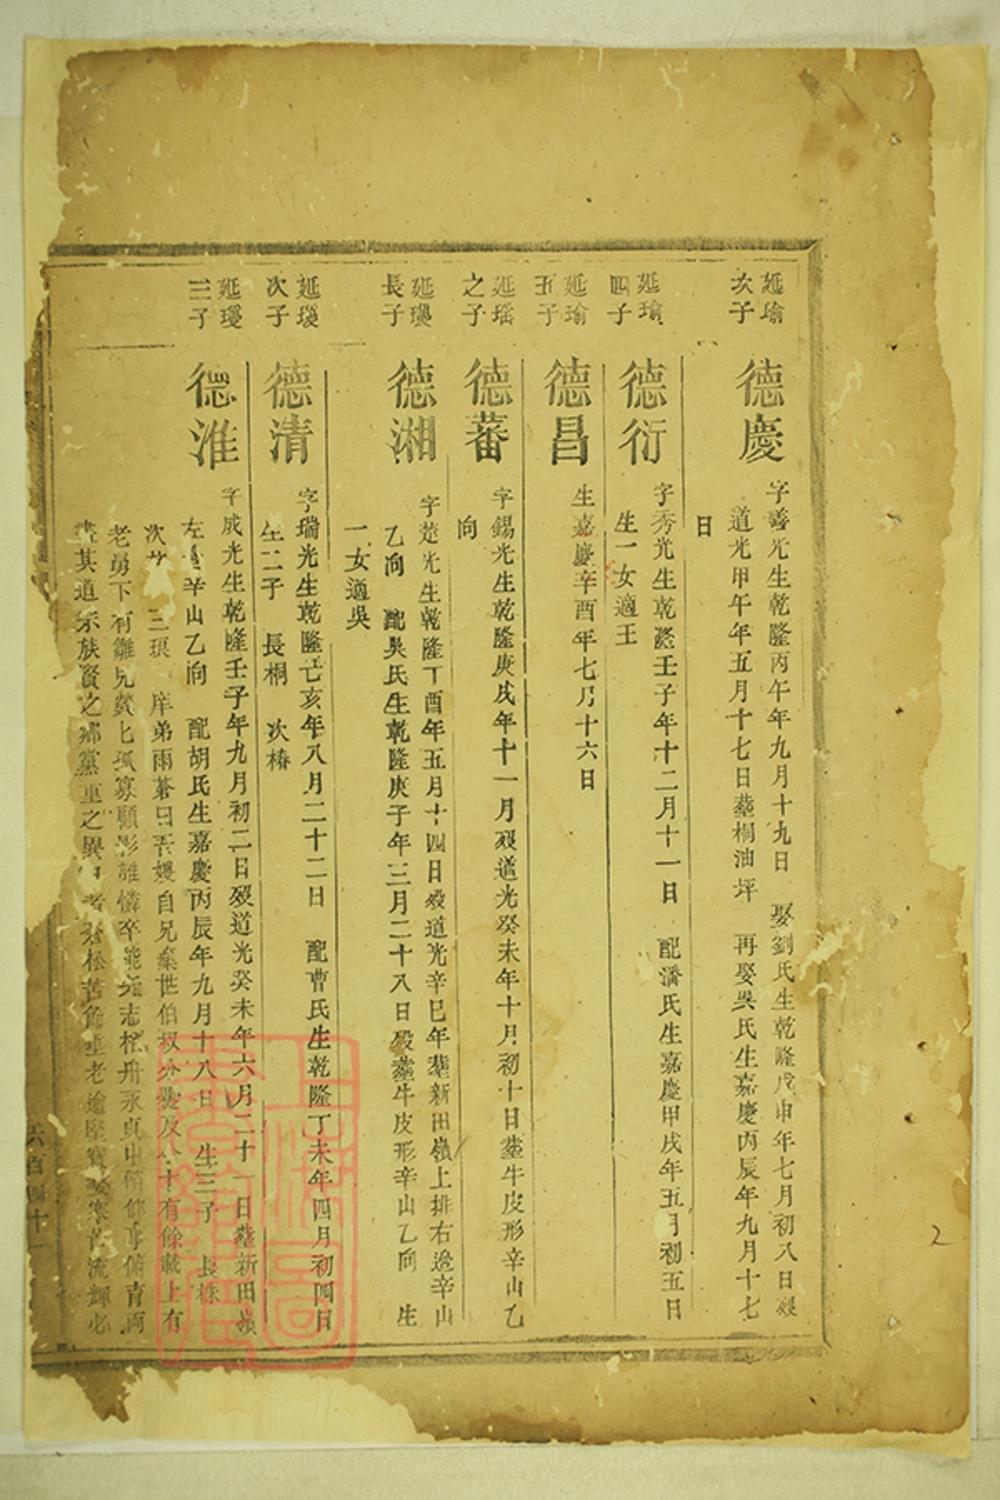 延瑜
次子
德慶
字善光生乾隆丙午年九月十九日 娶劉氏生乾隆戊申年七月初八日歿
道光甲午年五月十七日葬桐油坪 再娶吳氏生嘉慶丙辰年九月十七
日
延瑜
四子
德衍
字秀光生乾隆壬子年十二月十一日 配潘氏生嘉慶甲戌年五月初五日
生一女適王
延瑜
五子
德昌
生嘉慶辛酉年七月十六日
延瑶
之子
德蕃
字錫光生乾隆庚戌年十一月歿道光癸未年十月初十日葬牛皮形辛山乙
向
延瓊
長子
德湘
字楚光生乾隆丁酉年五月十四日歿道光辛巳年葬新田嶺上排右邊辛山
乙向 配吳氏生乾隆庚子年三月二十八日歿葬牛皮形辛山乙向 生
一女適吳
延瓊
次子
德清
字瑞光生乾隆己亥年八月二十二日 配曹氏生乾隆丁未年四月初四日
生二子 長桐 次椿
延瓊
三子
德淮
字成光生乾隆壬子年九月初二日歿道光癸未年六月二十一日葬新田嶺
左邊辛山乙向 配胡氏生嘉慶丙辰年九月十八日 生三子 長株
次 三 庠弟雨蒼曰吾嫂自兄棄世伯叔分爨及今十有餘載上有
老勇下有雛兒煢七孤寡顧影誰憐卒能矢志柏舟永貞中饋仰事俯育兩
其道宗族賢之鄉黨重之異 者 松苦節 老逾堅寶婺寒 流輝必
六百四十一
2